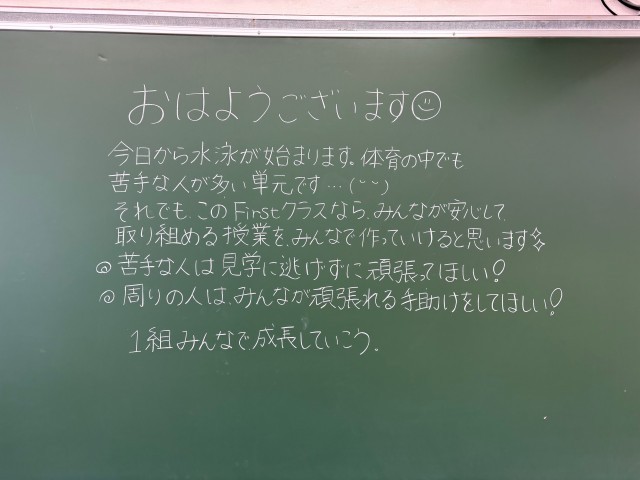 おはようございます☺
今日から水泳が始まります。体育の中でも
苦手な人が多い単元です…(˘˘)
それでも、このFirstクラスなら、みんなが安心して、
取り組める授業を、みんなで作っていけると思います✧
◎苦手な人は見学に逃げずに頑張ってほしい！
◎周りの人は、みんなが頑張れる手助けをしてほしい！
1組みんなで、成長していこう。